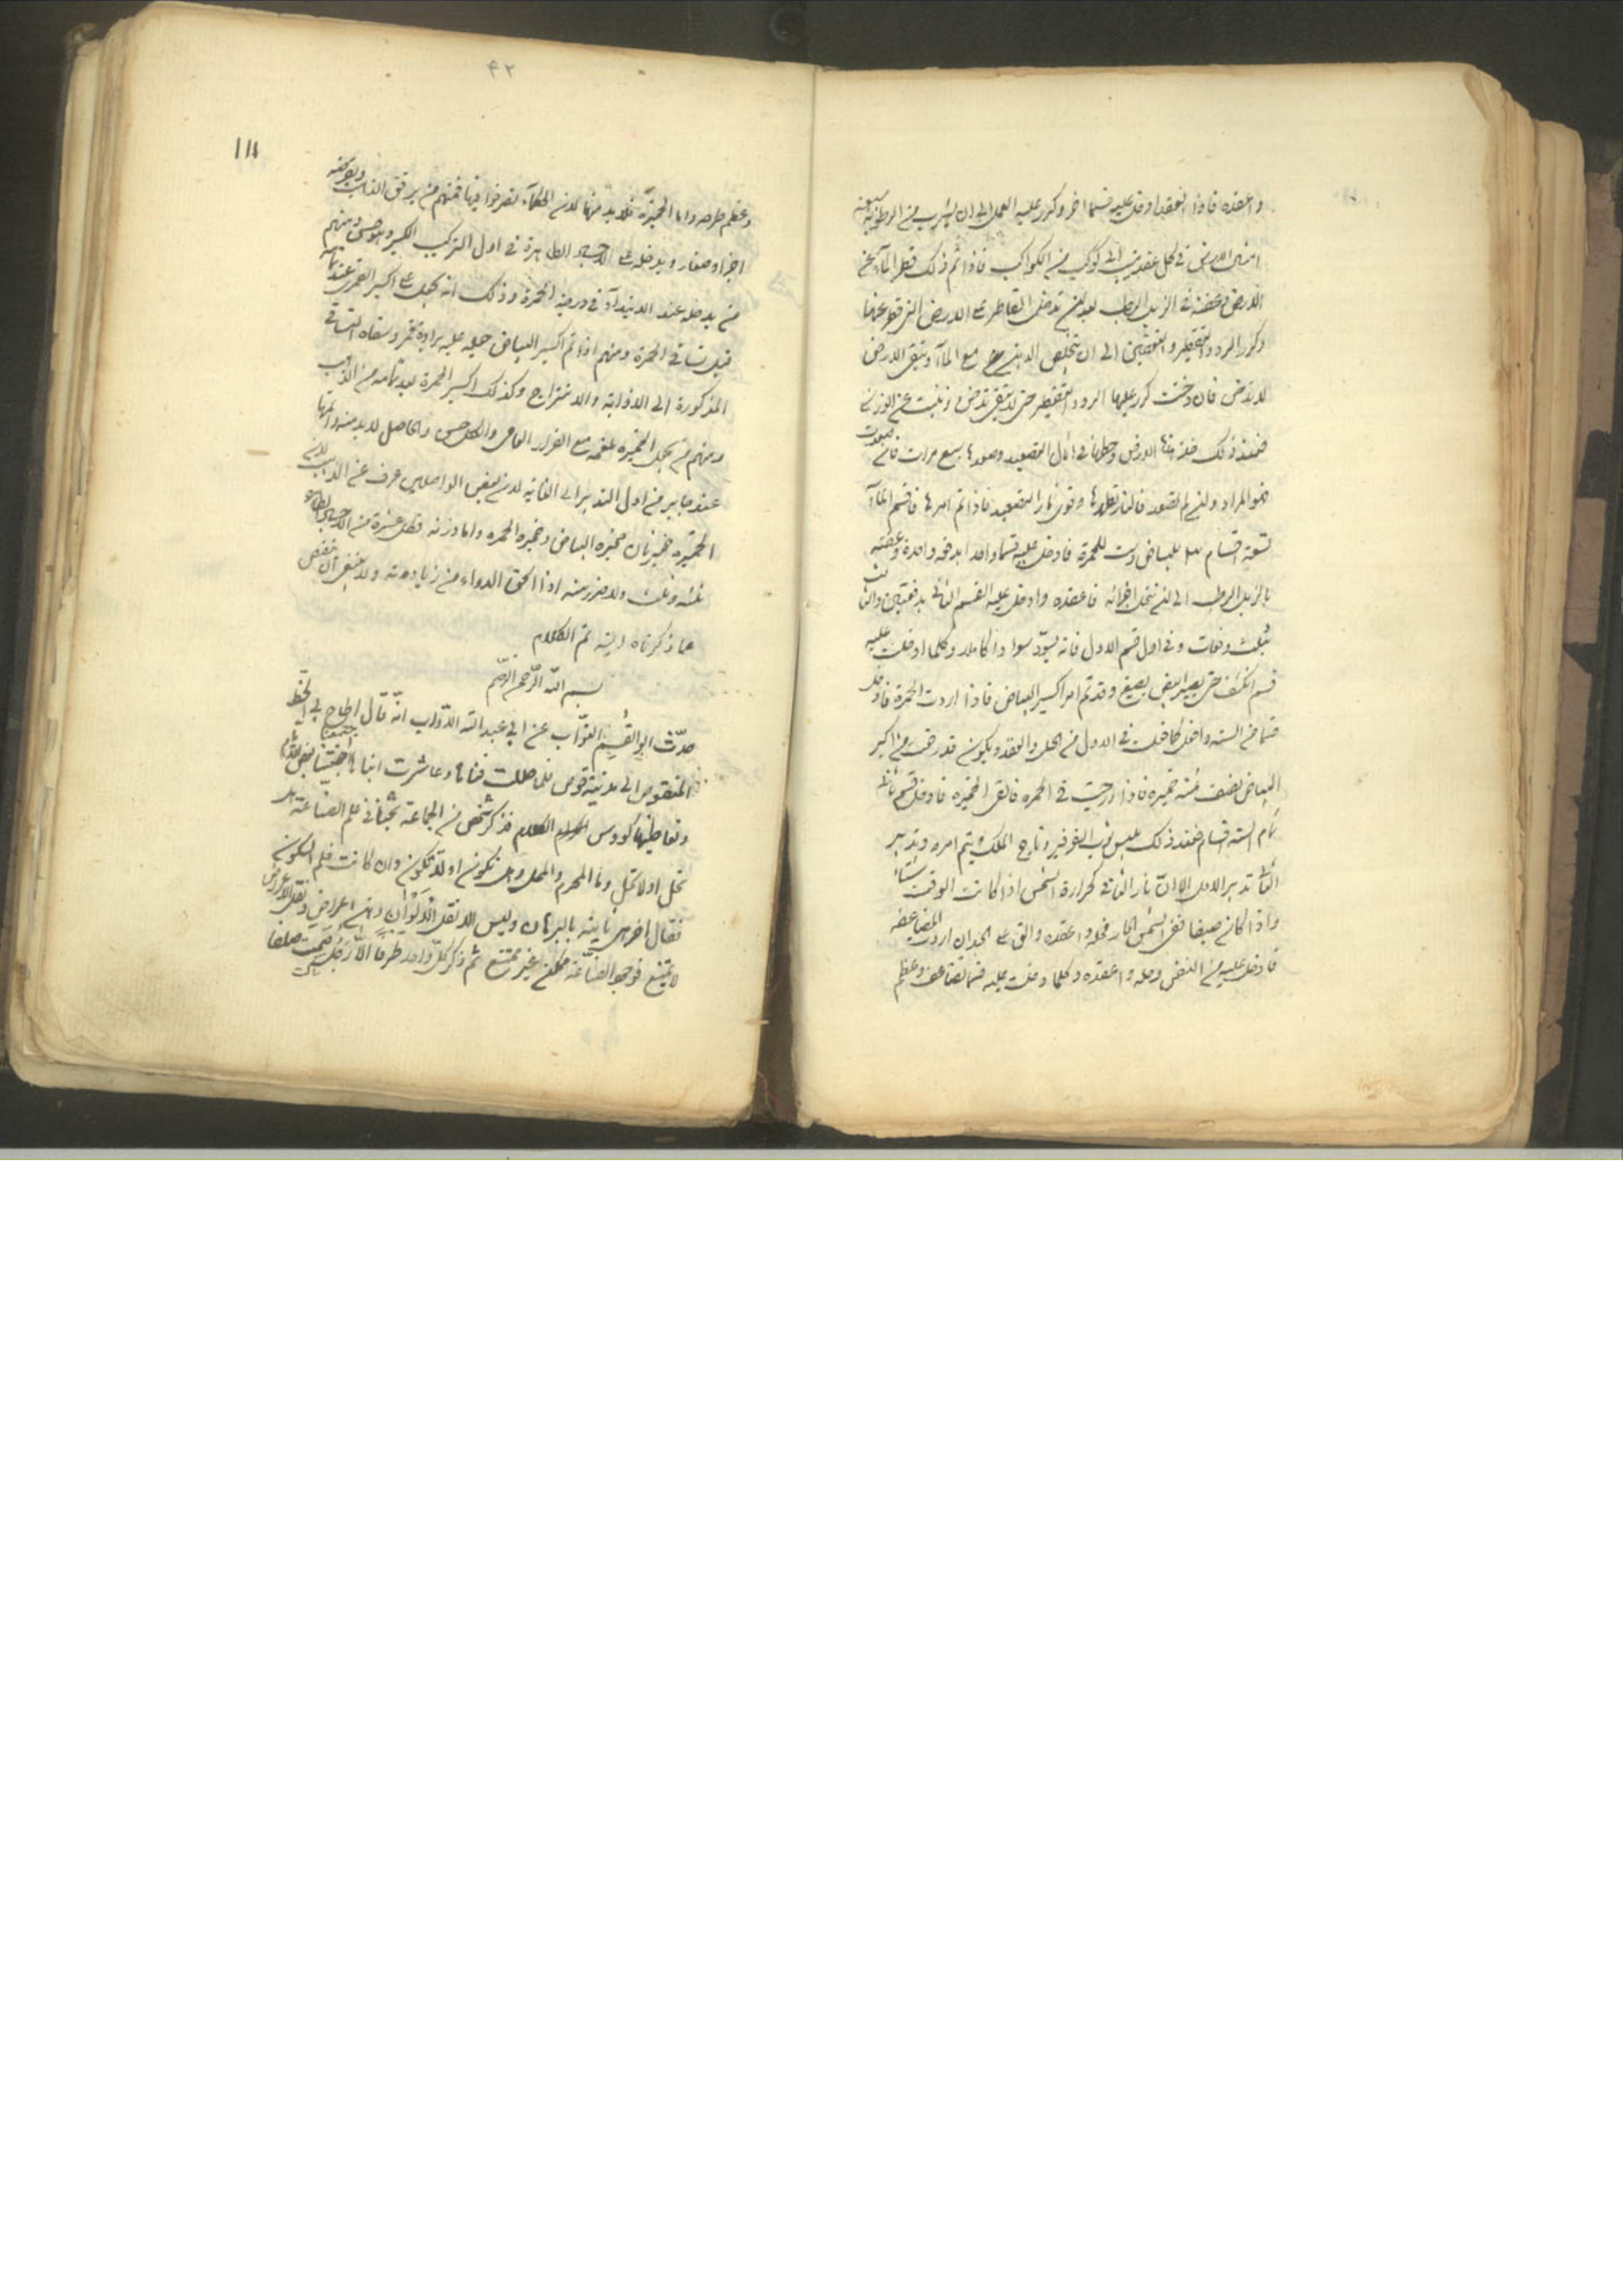 واعقده فاذا انعقد ادخل عليه قسما اخر وكرر عليه العمل الى ان يشرب من الرطوبة سبعة
امثال الارض في كل عقد ينسب الى كوكب من الكواكب فاذا تم ذلك قطر الماء عن
الارض وعفنه في الزبل الرطب بعد ان تدخل القاطر على الارض التي قطر عنها
وكرر الرد والتقطير والتعفين الى ان يتخلص الدهن مع الماء وتبقى الارض
لا تدخن فان دخنت كرر عليها الرد والتقطير حتى لا يبقى تدخن
فعند ذلك خذ هذا الارض واجعلها في اثال التصعيد وصعدها سبع مرات فان صعدت
فهو المراد وان لم تصعد وقوى نار التصعيد فاذا تم امرها فاقسم الماء
تسعة اقسام ٣ للبياض وست للحمرة فادخل عليه قسما واحدا بدفعة واحدة وعفنه
بالزبل الرطب الى ان تنحل اجزائه فاعقده وادخل عليه القسم الثاني بدفعتين والثالث
بثلث دفعات وفي اول قسم الاول فانه يسود سوادا كاملا وكلما ادخلت عليه
قسم انكشف حتى يصير ابيض يصبغ وقد تم امر اكسير البياض فاذا اردت الحمرة فادخل
قسما من الستة وافعل كما فعلت في الاول من الحل والعقد ويكون قد رفعت من اكسير
البياض نصف ثمنه خميرة فاذا درجت في الحمرة فالق الخميرة فادخل قسم ثاني
تمام الستة اقسام فعند ذلك يلبس ثوب الفرفير وتاج الملك ويتم امره وتدبير
الثاني تدبير الاول الا ان نار الثاني كحرارة الشمس اذا كانت الوقت شتاء
واذا كان صيفا ففي الشمس الحار فحله واعقده والق على الجسد ان اردت المضاعفه
فادخل عليه من النقص وحله واعقده وكلما دخلت عليه قسما تضاعف وعظم
٤٢
١١١
وعظم طرحه واما الخميرة فلا بد منها لان الحكماء تصرفوا فيها فمنهم من يرقق الذهب
اجزاء صغار ويدخله على الاجساد الطاهرة في اول التركيب الكبير ومنهم
من يدخله عند الابتداء في درجة الحمرة وذلك انه يجعل على اكسير القمر عند تمامه
قبل تساقي الحمرة ومنهم اذا تم اكسير البياض جعل عليه برادة قمر وسقاه التساقي
المذكورة الى الاذابة والامتزاج وكذلك اكسير الحمرة بعد تمامه من الذهب
ومنهم من يجعل الخميرة ملغمه مع الفرار والحاصل لا بد منه
عند جابر من اول التدبير الى الغاية لان بعض الواصلين عرف عن الذهب
الخميرة خميرتان خميرة البياض وخميرة الحمرة واما وزنه فكل عشرة من الاجساد
ثلثه وثلث ولا ضرر منه اذا الحق الدواء من زيادته ولا ينبغي ان ينقص
عما ذكرناه البته تم الكلام
بسم الله الرحمن الرحيم
حدّث ابو القسم النوّاب عن ابي عبد الله الدوّاب انّه قال اطاح بي الحظ
المنقوص الى مدينة قوص فلما حللت فناها وعاشرت ابناها
وتعاطينا كووس الكلام فذكر شخص من الجماعة بحثا في علم الصناعة هل
تحل او لا تحل وما المحرم والمحل وهل تكون او لا تكون وان كانت فلم السكون
فقال اخر هي ثابتة بالبرهان وليس الا نقل الالوان وهي اعراض ونقل الاعراض
لا يمتنع فوجود الصناعة ممكن غير ممتنع ثم ذكر كل واحد طرفا الّا رجل